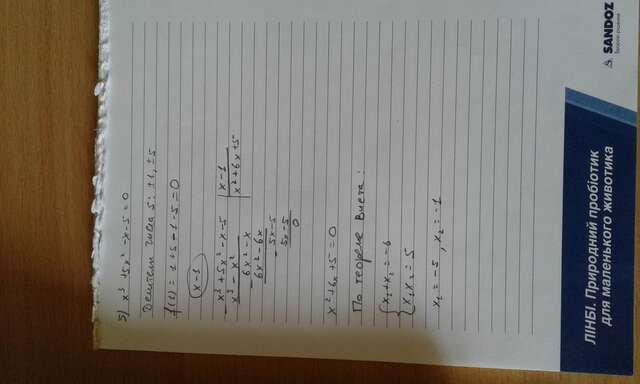 5) x³ + 5x² - x - 5 = 0
Делители числа 5: ±1, ±5
f(1) = 1 + 5 - 1 - 5 = 0
x - 1
x³ + 5x² - x - 5 | x - 1
x³ - x² x² + 6x + 5
6x² - x
6x² - 6x
5x - 5
5x - 5
0
x² + 6x + 5 = 0
По теореме Виета:
x₁ + x₂ = -6
x₁x₂ = 5
x₁ = -5, x₂ = -1
ЛІНБІ. Природний пробіотик
для маленького животика
SANDOZ
Здорові рішення